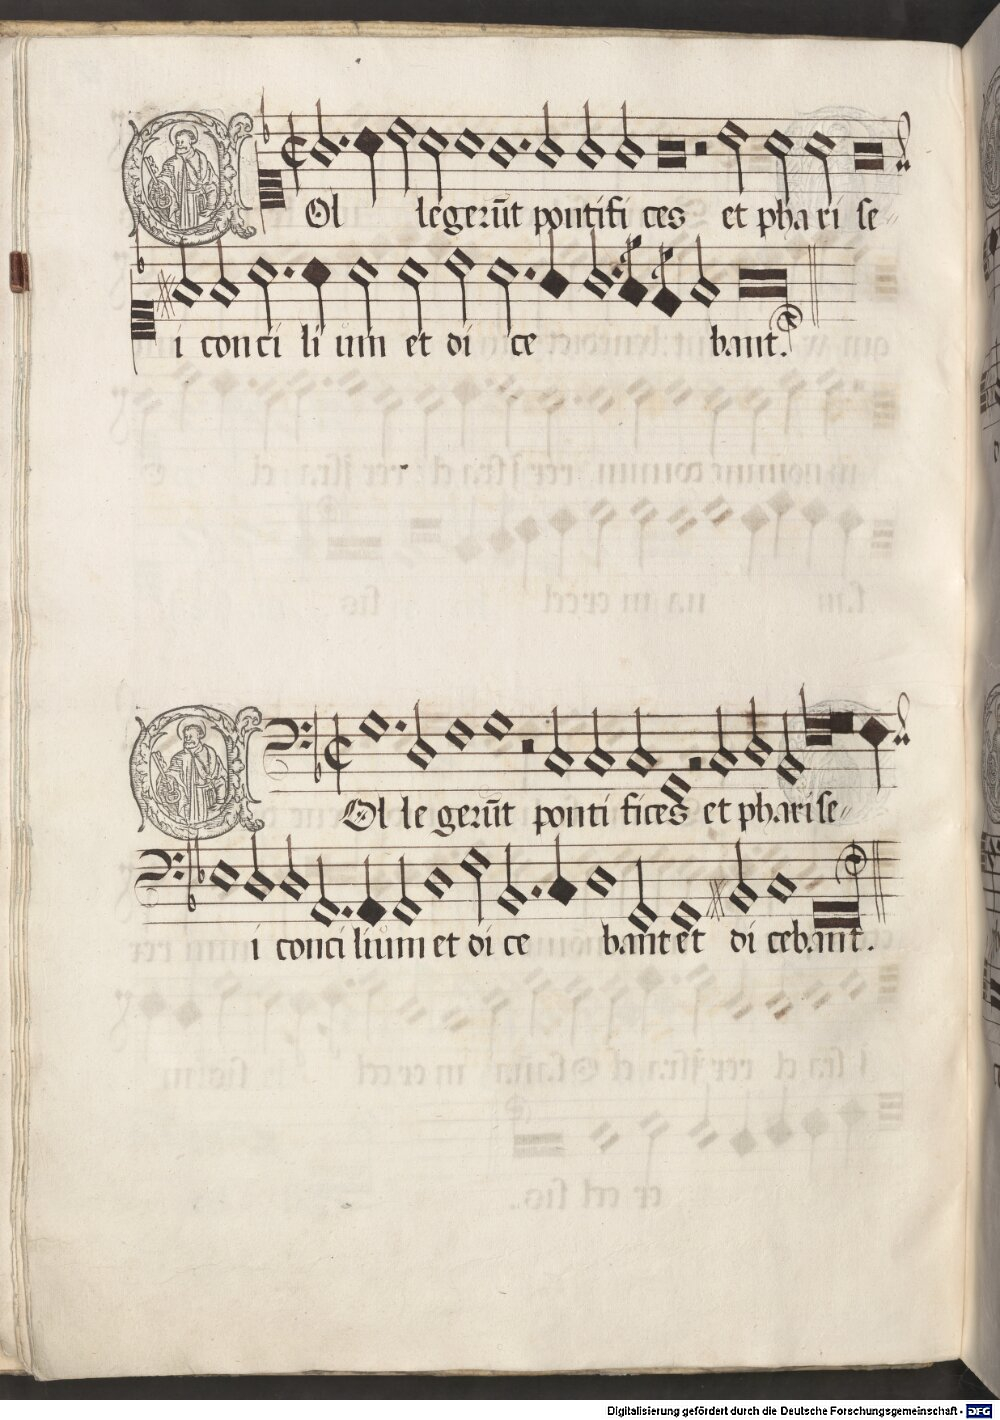 Ol legerūt pontifi ces et phari se
i conci li ům et di ce bant.
Ol le gerūt ponti fices et pharise
i conci liům et di ce bant et di cebant.
Digitalisierung gefördert durch die Deutsche Forschungsgemeinschaft - DFG